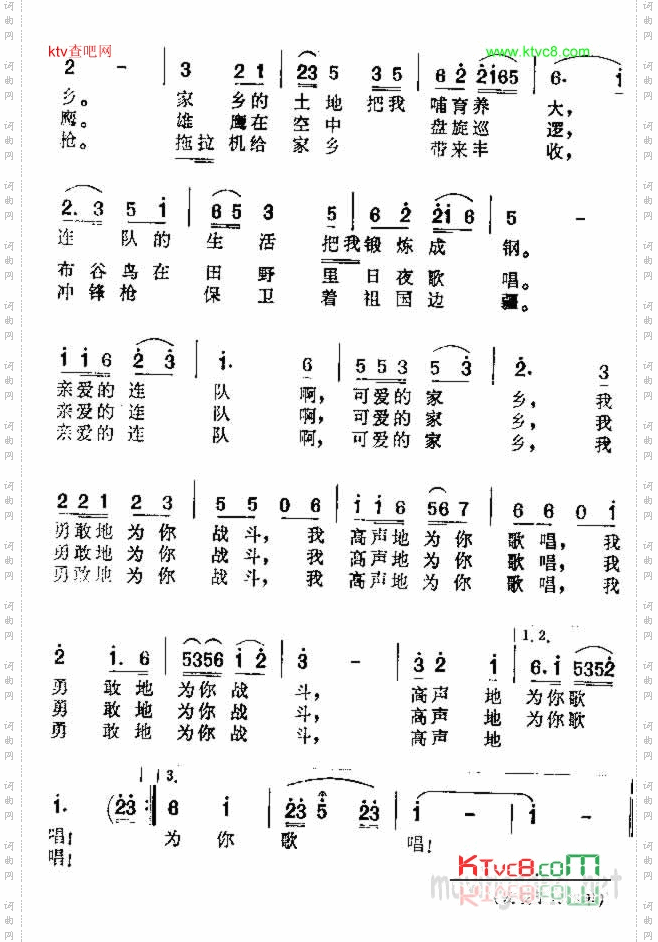 ktv查吧网
www.ktvc8.com
2 - 3 2 2 1 2 3 5 3 3 5 6 2 2 1 6 5 6. 1
乡。 家 乡的 土 地 把我 哺育养 大,
鹰。 雄 鹰在 空 中 盘旋巡 逻,
枪。 拖拉 机给 家 乡 带来丰 收,
2. 3 5 1 6 5 3 5 6 2 2 1 6 5 -
连 队的 生 活 把我 锻炼成 钢。
布谷鸟在 田 野 里 日夜歌 唱。
冲锋枪 保 卫 着 祖国边 疆。
1 1 6 2 3 1. 6 5 5 3 5 3 2. 3
亲爱的 连 队 啊, 可爱的 家 乡, 我
亲爱的 连 队 啊, 可爱的 家 乡, 我
亲爱的 连 队 啊, 可爱的 家 乡, 我
2 2 1 2 3 5 5 0 6 1 1 6 5 6 7 6 6 0 1
勇敢地 为你 战斗, 我 高声地 为你 歌唱, 我
勇敢地 为你 战斗, 我 高声地 为你 歌唱, 我
勇敢地 为你 战斗, 我 高声地 为你 歌唱, 我
1. 2.
2 1. 6 5 3 5 6 1 2 3 - 3 2 1 6. 1 5 3 5 2
勇 敢地 为你战 斗, 高声 地 为你歌
勇 敢地 为你战 斗, 高声 地 为你歌
勇 敢地 为你战 斗, 高声 地
3.
1. (2 3 :‖ 6 1 2 3 5 2 3 1 - 1 -
唱! 为 你 歌 唱!
唱!
KTvc8.com